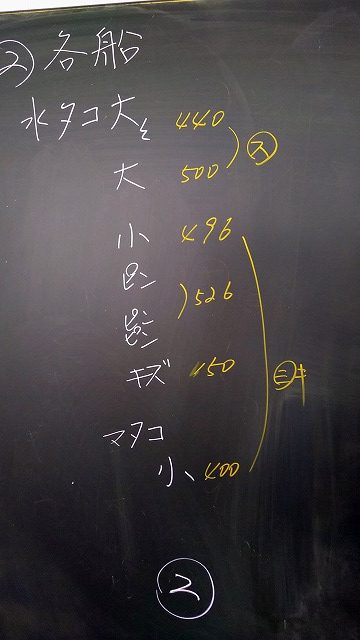 2) 各船
水タコ 大と 440
大 500
ス
小 496
ピン
526
キズ 450
マタコ
小 400
ミキ
2